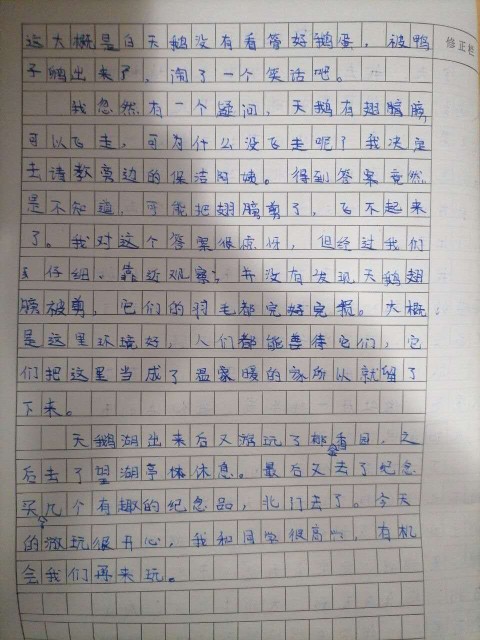 这大概是白天鹅没有看管好鹅蛋，被鸭
修正栏
子孵出来了，闹了一个笑话吧。
我忽然有一个疑问，天鹅有翅膀膀
可以飞走，可为什么没飞走呢？我决定
去请教旁边的保洁阿姨。得到答案竟然
是不知道，可能把翅膀剪了，飞不起来
了。我对这个答案很惊讶，但经过我们
仔细、靠近观察，并没有发现天鹅翅
膀被剪，它们的羽毛都完好完损。大概
是这里环境好，人们都能善待它们，它
们把这里当成了温家暖的家所以就留了
下来。
天鹅湖出来后又游玩了郁香园，之
后去了望湖亭休休息。最后又去了纪念
买几个有趣的纪念品，就打去了。今天
的游玩很开心，我和同学很高兴，有机
会我们再来玩。